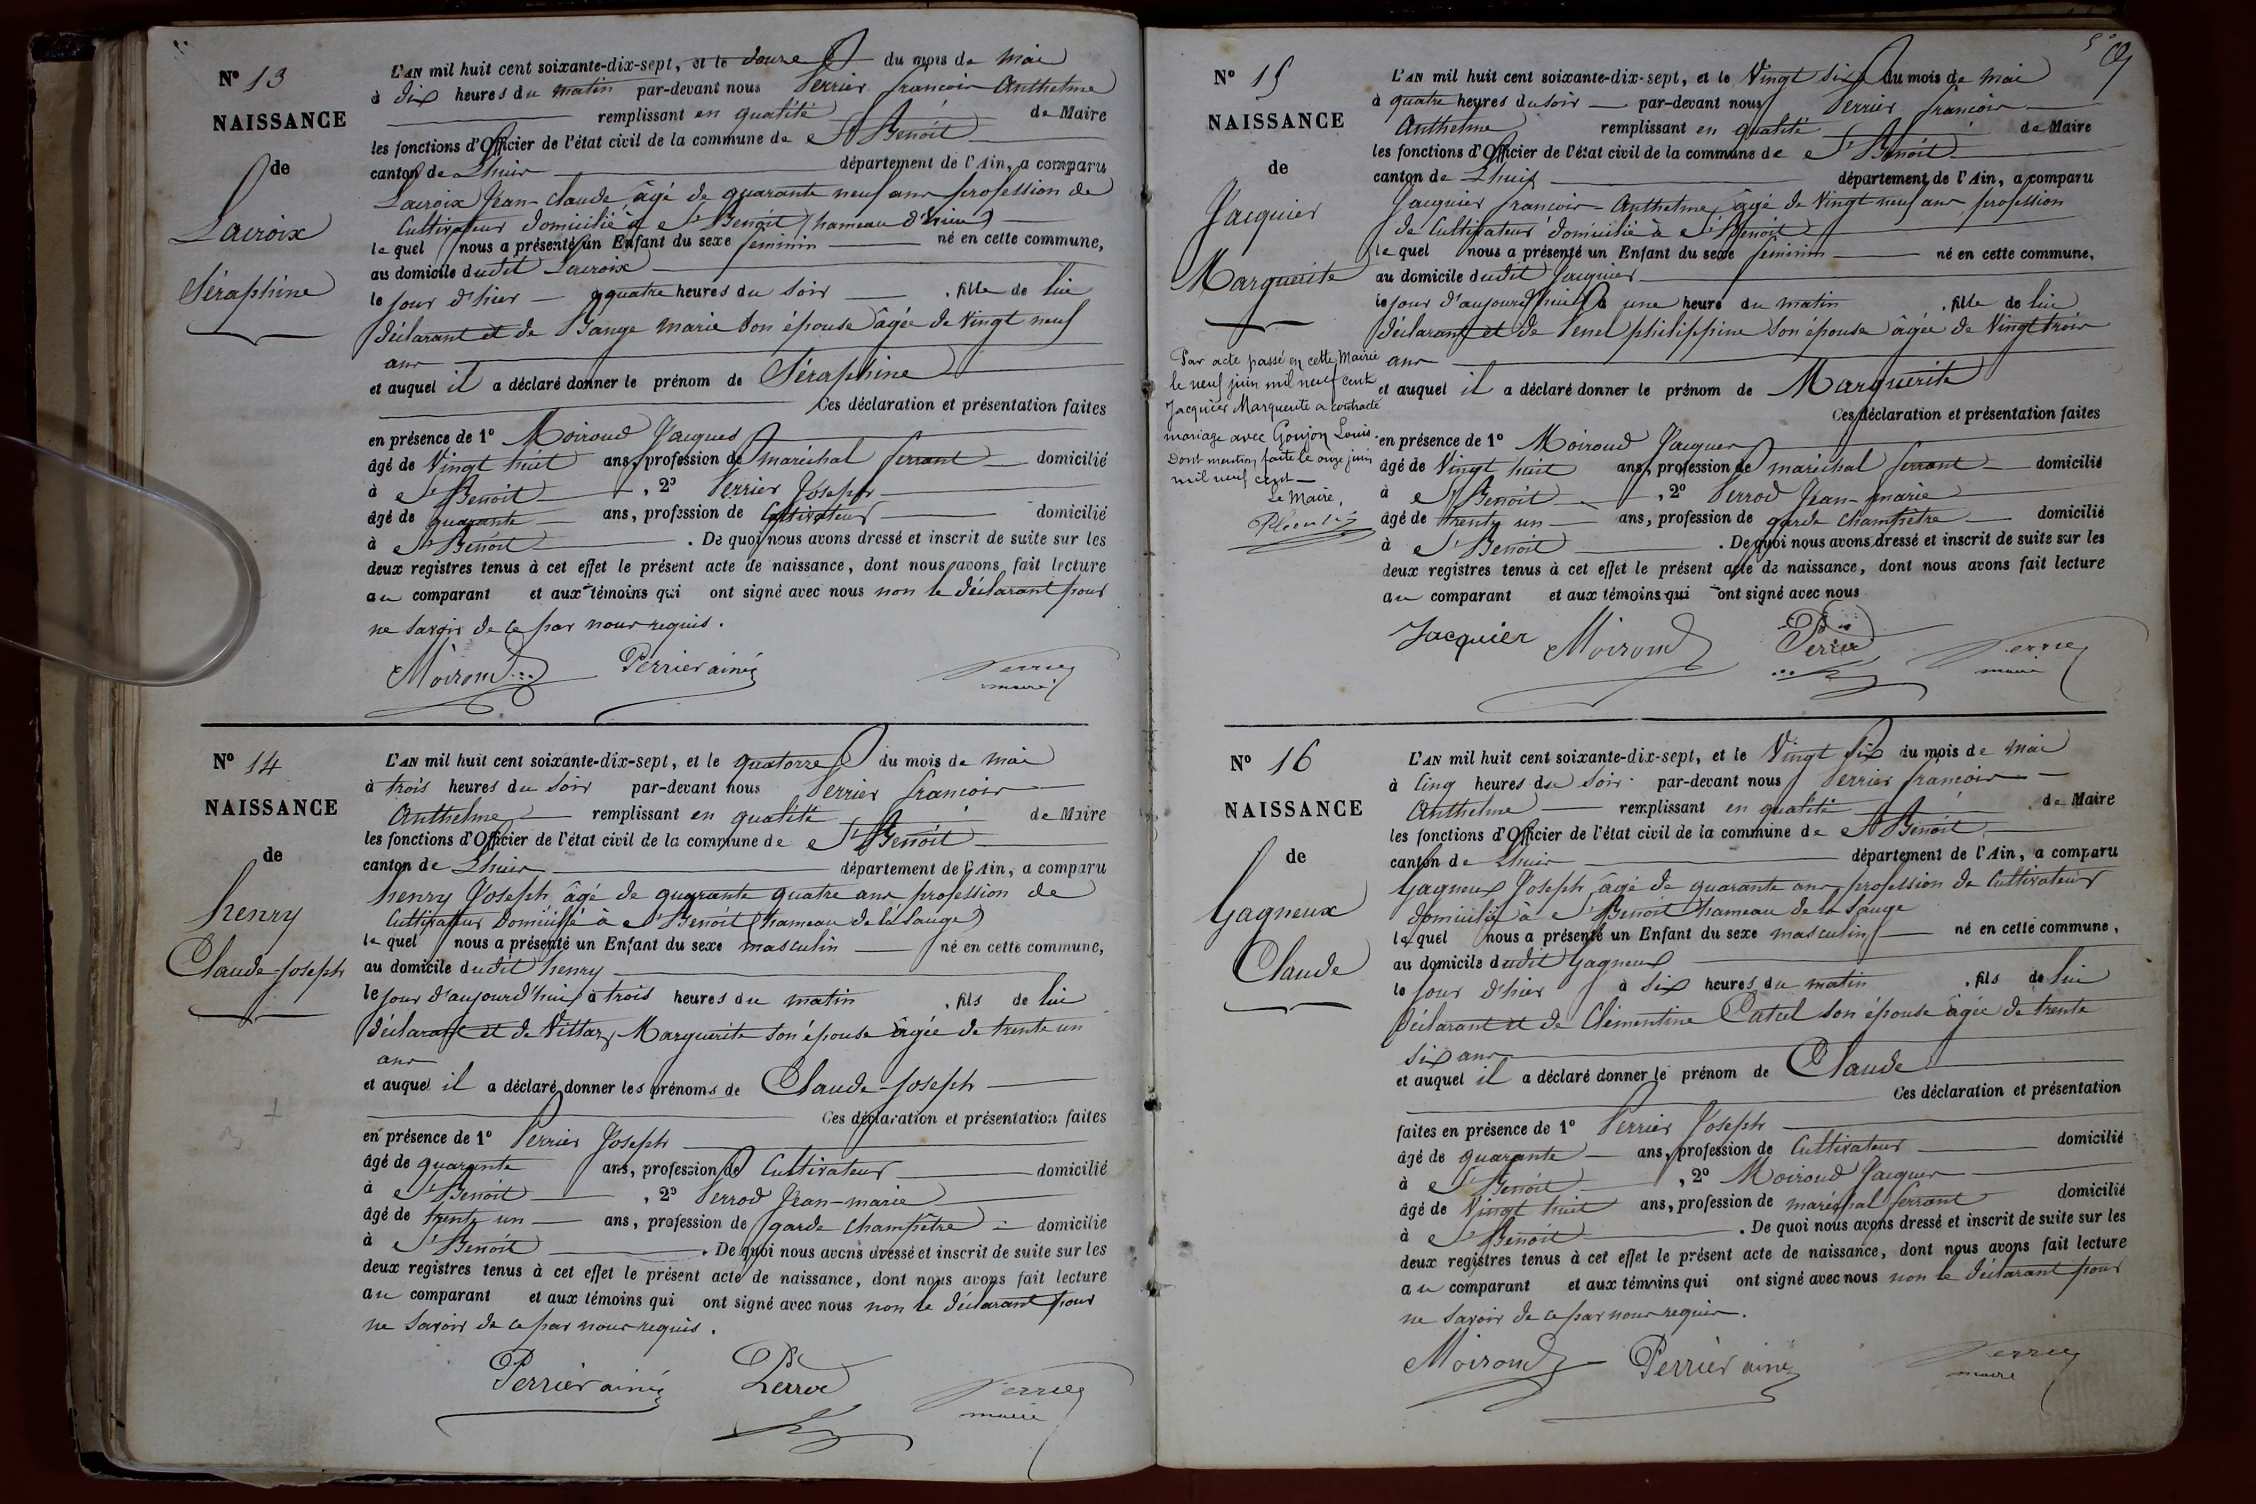 N° 13
NAISSANCE
de
Lacroix
Séraphine
L'AN mil huit cent soixante-dix-sept, et le douze du mois de mai
à dix heures du matin par-devant nous Perrier francois Anthelme
remplissant en qualité de Maire
les fonctions d'Officier de l'état civil de la commune de St Benoit
canton de Lhuis département de l'Ain, a comparu
Lacroix Jean-Claude âgé de quarante neuf ans profession de
Cultivateur domicilié à St Benoit (hameau
le quel nous a présenté un Enfant du sexe feminin né en cette commune,
au domicile dudit Lacroix
le jour d'hier à quatre heures du soir . fille de lui
déclarant et de Sange marie son épouse âgée de vingt neuf
ans
et auquel il a déclaré donner le prénom de Séraphine
Ces déclaration et présentation faites
en présence de 1° Moiroud Jacques
âgé de Vingt huit ans, profession de maréchal ferrant domicilié
à St Benoit , 2° Perrier Joseph
âgé de quarante ans, profession de Cultivateur domicilié
à St Benoit . De quoi nous avons dressé et inscrit de suite sur les
deux registres tenus à cet effet le présent acte de naissance, dont nous avons fait lecture
au comparant et aux témoins qui ont signé avec nous non le déclarant pour
ne savoir de ce par nous requis.
Moiroud Perrier ainé Perrier
maire
N° 14
NAISSANCE
de
henry
Claude-Joseph
L'AN mil huit cent soixante-dix-sept, et le quatorze du mois de mai
à trois heures du soir par-devant nous Perrier francois
Anthelme remplissant en qualité de Maire
les fonctions d'Officier de l'état civil de la commune de St Benoit
canton de Lhuis département de l'Ain, a comparu
henry Joseph âgé de quarante quatre ans profession de
Cultivateur Domicilié à St Benoit (hameau de la Sauge)
le quel nous a présenté un Enfant du sexe masculin né en cette commune,
au domicile dudit henry
le jour d'aujourd'hui à trois heures du matin . fils de lui
déclarant et de Vittaz Marguerite son épouse âgée de trente un
ans
et auquel il a déclaré donner les prénoms de Claude-Joseph
Ces déclaration et présentation faites
en présence de 1° Perrier Joseph
âgé de quarante ans, profession de Cultivateur domicilié
à St Benoit , 2° Perrod Jean-marie
âgé de trente un ans, profession de garde champêtre domicilié
à St Benoit . De quoi nous avons dressé et inscrit de suite sur les
deux registres tenus à cet effet le présent acte de naissance, dont nous avons fait lecture
au comparant et aux témoins qui ont signé avec nous non le déclarant pour
ne savoir de ce par nous requis.
Perrier ainé Perrod Perrier
maire
N° 15
NAISSANCE
de
Jacquier
Marguerite
Par acte passé en cette Mairie
le neuf juin mil neuf cent
Jacquier Marguerite a contracté
mariage avec Goujon Louis.
Dont mention faite le onze juin
mil neuf cent
Le Maire,
L'AN mil huit cent soixante-dix-sept, et le Vingt six du mois de mai
à quatre heures du soir par-devant nous Perrier francois
Anthelme remplissant en qualité de Maire
les fonctions d'Officier de l'état civil de la commune de St Benoit
canton de Lhuis département de l'Ain, a comparu
Jacquier francois-Anthelme âgé de Vingt neuf ans profession
de Cultivateur domicilié à St Benoit
le quel nous a présenté un Enfant du sexe feminin né en cette commune,
au domicile dudit Jacquier
le jour d'aujourd'hui à une heure du matin . fille de lui
déclarant et de Penel philippine son épouse âgée de Vingt trois
ans
et auquel il a déclaré donner le prénom de Marguerite
Ces déclaration et présentation faites
en présence de 1° Moiroud Jacques
âgé de Vingt huit ans, profession de maréchal ferrant domicilié
à St Benoit , 2° Perrod Jean-marie
âgé de trente un ans, profession de garde champêtre domicilié
à St Benoit . De quoi nous avons dressé et inscrit de suite sur les
deux registres tenus à cet effet le présent acte de naissance, dont nous avons fait lecture
au comparant et aux témoins qui ont signé avec nous
Jacquier Moiroud Perrod Perrier
maire
N° 16
NAISSANCE
de
Gagneux
Claude
L'AN mil huit cent soixante-dix-sept, et le Vingt six du mois de mai
à Cinq heures du soir par-devant nous Perrier francois
Anthelme remplissant en qualité de Maire
les fonctions d'Officier de l'état civil de la commune de St Benoit
canton de Lhuis département de l'Ain, a comparu
Gagneux Joseph âgé de quarante ans profession de Cultivateur
domicilié à St Benoit hameau de la Sauge
le quel nous a présenté un Enfant du sexe masculin né en cette commune,
au domicile dudit Gagneux
le jour d'hier à six heures du matin . fils de lui
déclarant et de Clémentine son épouse âgée de trente
six ans
et auquel il a déclaré donner le prénom de Claude
Ces déclaration et présentation
faites en présence de 1° Perrier Joseph
âgé de quarante ans, profession de Cultivateur domicilié
à St Benoit , 2° Moiroud Jacques
âgé de Vingt huit ans, profession de maréchal ferrant domicilié
à St Benoit . De quoi nous avons dressé et inscrit de suite sur les
deux registres tenus à cet effet le présent acte de naissance, dont nous avons fait lecture
au comparant et aux témoins qui ont signé avec nous non le déclarant pour
ne savoir de ce par nous requis.
Moiroud Perrier ainé Perrier
maire